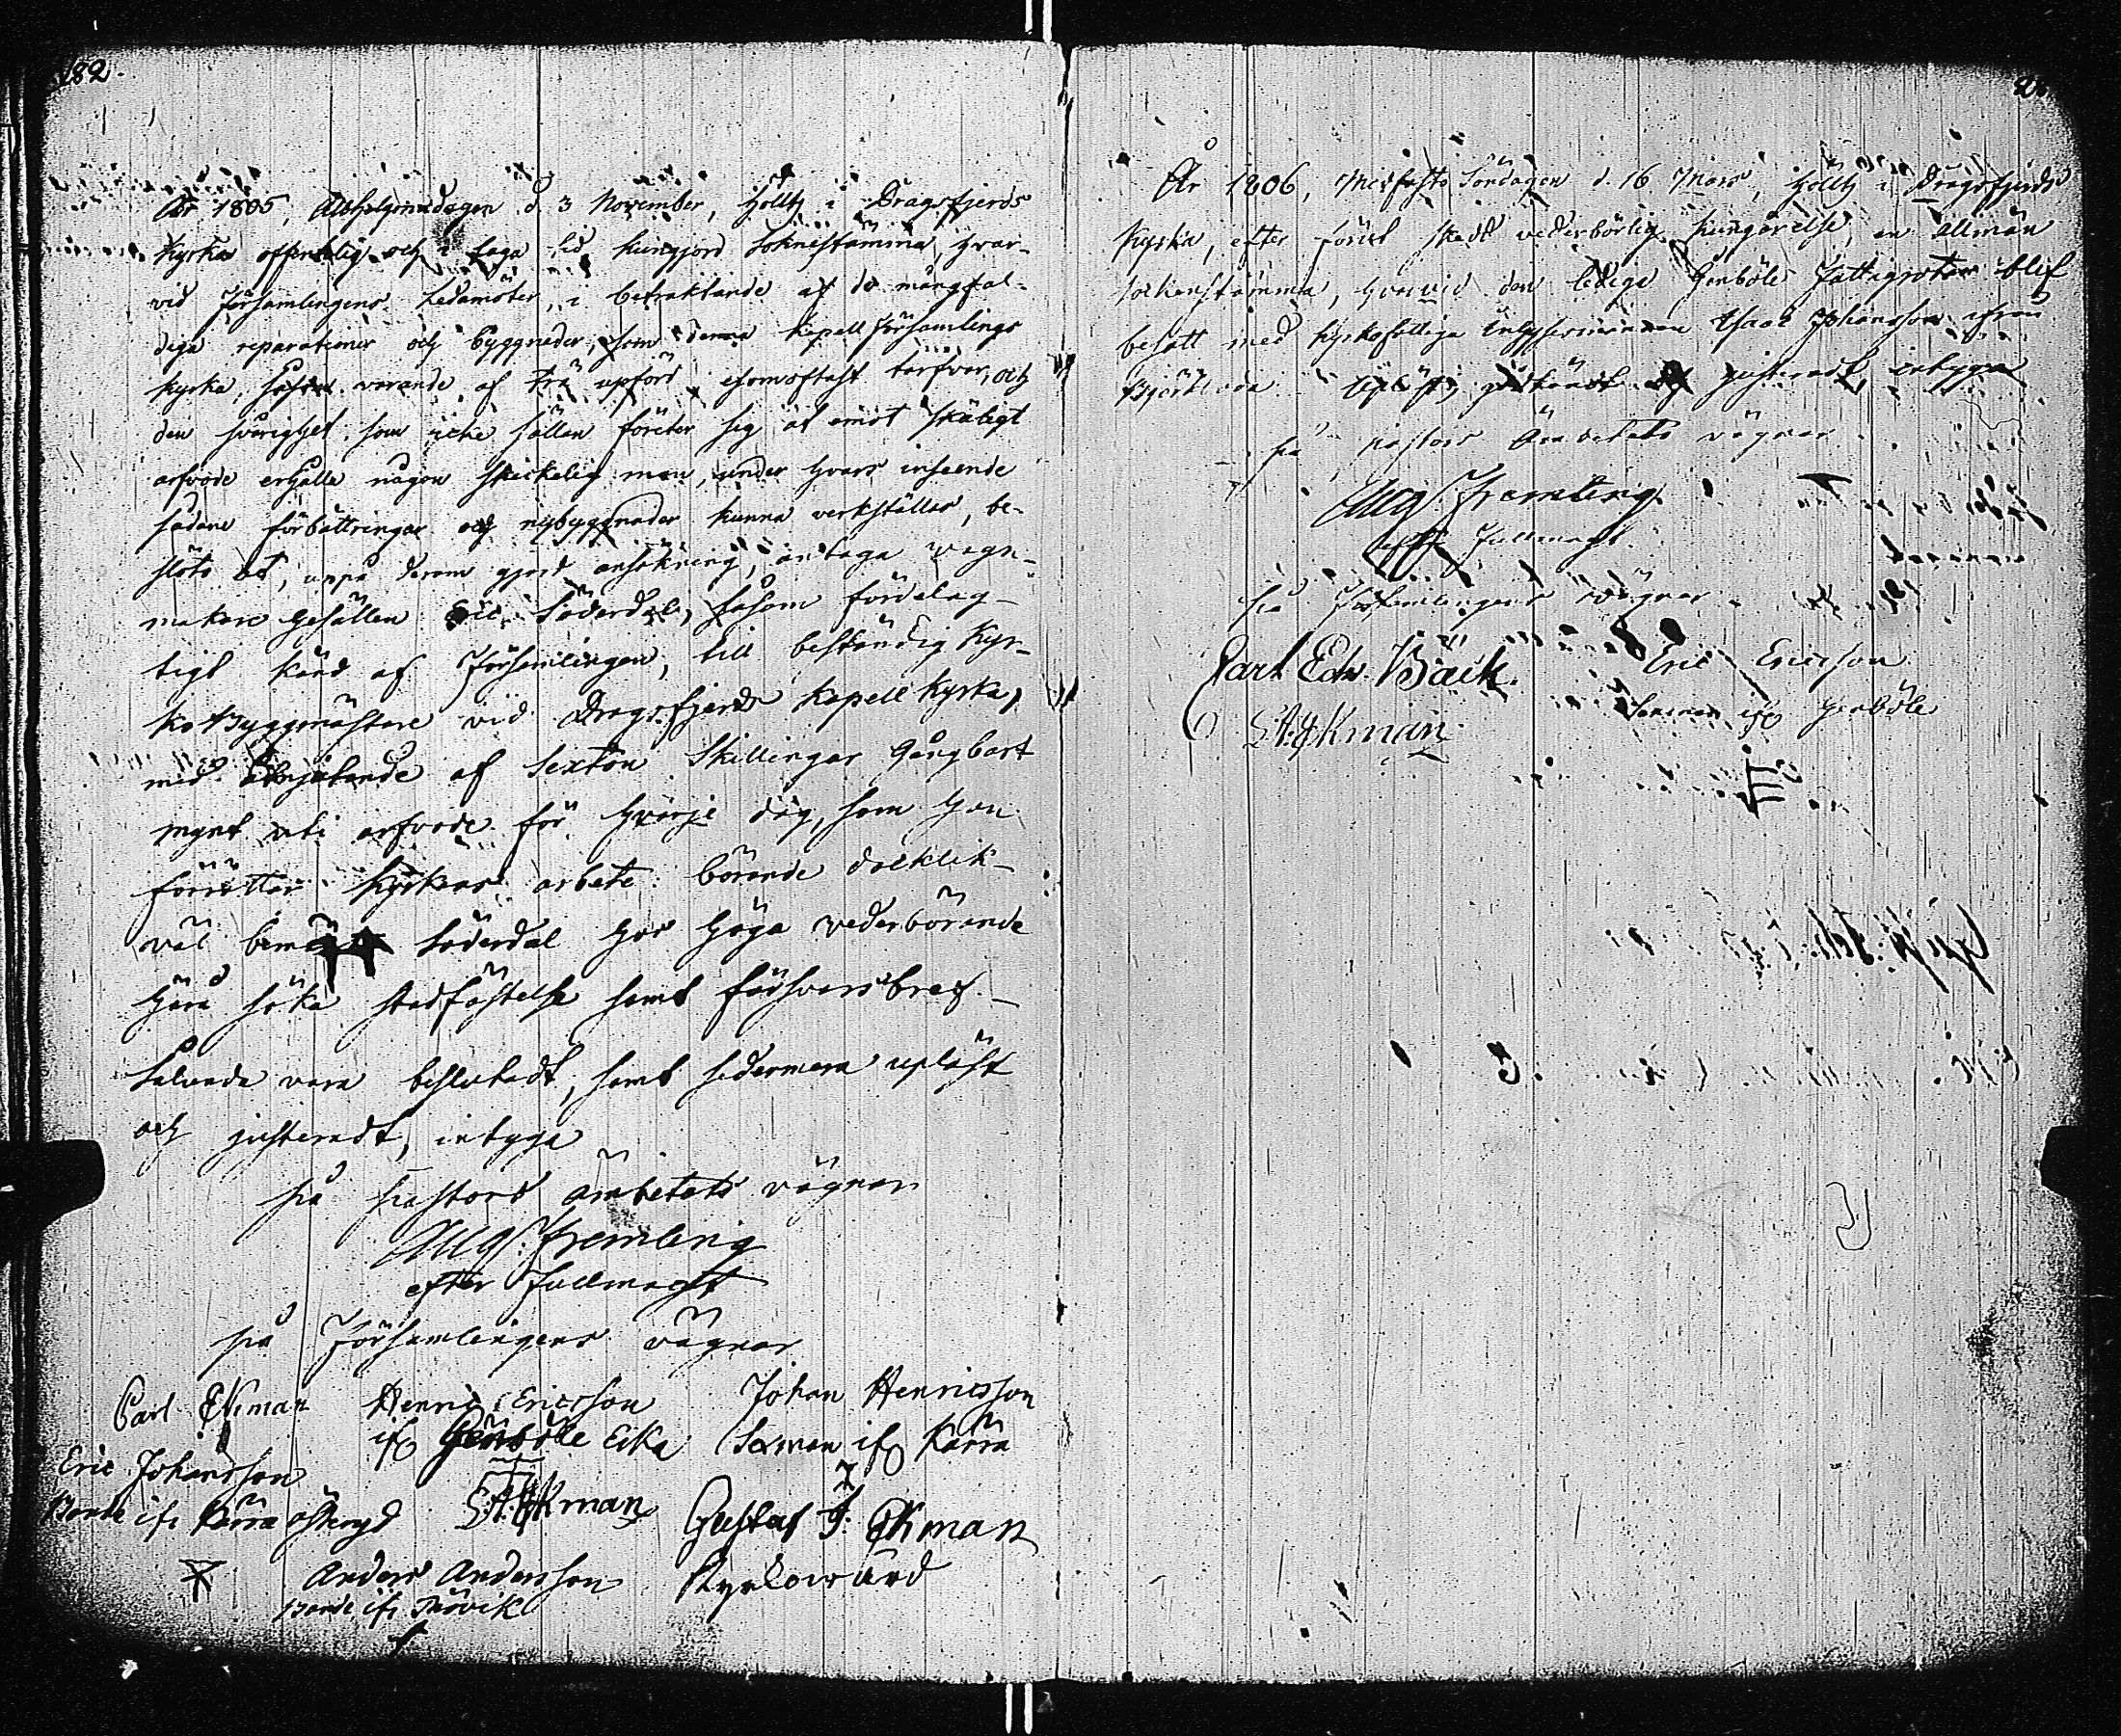 182.
År 1805, Allhelgonadagen d. 3 November, hölltz i Dragsfjerds
Kyrka offentelig och i laga tid kungjord Soknestämma, hvar-
vid Församlingens Ledamöter, i betraktande af de mångfal-
diga reparationer och byggnader, som denna Kapell Församlings
kyrka, såsom varande af trä upförd esomoftast tarfvar, och
den svårighet, som icke sällan företer sig at emot skäligt
arfvode erhålla någon skickelig man, under hvars inseende
sådane förbättringar och nybyggnader kunna verkställas, be-
slöts at, uppå derom gjord ansökning, antaga vagn-
makare Gesällen Eric Söderdal, såsom fördelag-
tigt känd af Församlingen, till beständig Kyr-
ko Byggmästare vid Dragsfjerds Kapell Kyrka,
med åtnjutande af sexton Skillingar Gångbart
mynt uti arfvode för hvarje dag, som han
förrättar Kyrkans arbete: börande dock lik-
väl Söderdal hos höga vederbörande
härå söka stadfästelse samt försvarsbref. –
Sålunda vara beslutadt, samt sedermera upläst
och justeradt, intyga
på Pastors ämbetets vägnar
Aug: Fremling
efter Fullmagt
på Församlingens vägnar
Carl Ekman Henric Ericsson Johan Henricsson
ifr Genböle Eka Sexman ifr Kärra
Eric Johansson
Bonde ifr Kärra östergd E.A. Ekman Gustaf J: Ekman
Anders Andersson Kyrkowärd
Bonde ifr
År 1806, Midfasto Söndagen d. 16 Mars, hölltz i Dragsfjerds
Kyrka, efter förut skedt vederbörlig kungörelse, en allmän
Sockenstämma, hvarvid den ledige Genböle Fattigrotan blef
besatt med kyrkofattiga Isaac Johansson ifrån
Björkboda. Upläst, godkändt och justeradt, intyga
på pastors Ämbetets vägnar
Aug: Fremling
efter Fullmagt.
på Församlingens vägnar
Carl Edv. Bäck. Eric Ericsson
E.A. Ekman Sexman ifr Genböle